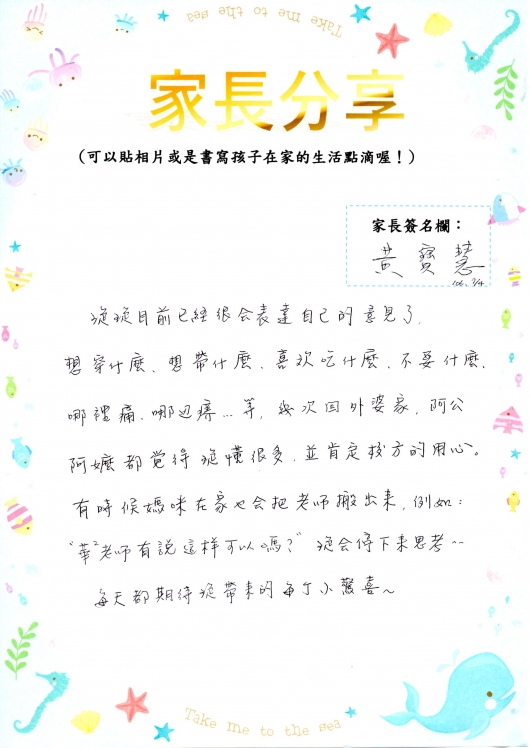 Take me to the sea
家長分享
(可以貼相片或是書寫孩子在家的生活點滴喔！)
家長簽名欄：
黃寶慧
106. 3/4
漩漩目前已經很会表達自己的意見了,
想穿什麼、想帶什麼、喜欢吃什麼、不要什麼、
哪裡痛、哪边痒…等, 幾次回外婆家, 阿公
阿嬤都覺得漩懂很多, 並肯定校方的用心。
有時候媽咪在家也会把老师搬出來, 例如：
"華²老师有說這樣可以嗎?" 漩会停下來思考~~
每天都期待漩帶來的每丁小驚喜~
Take me to the sea